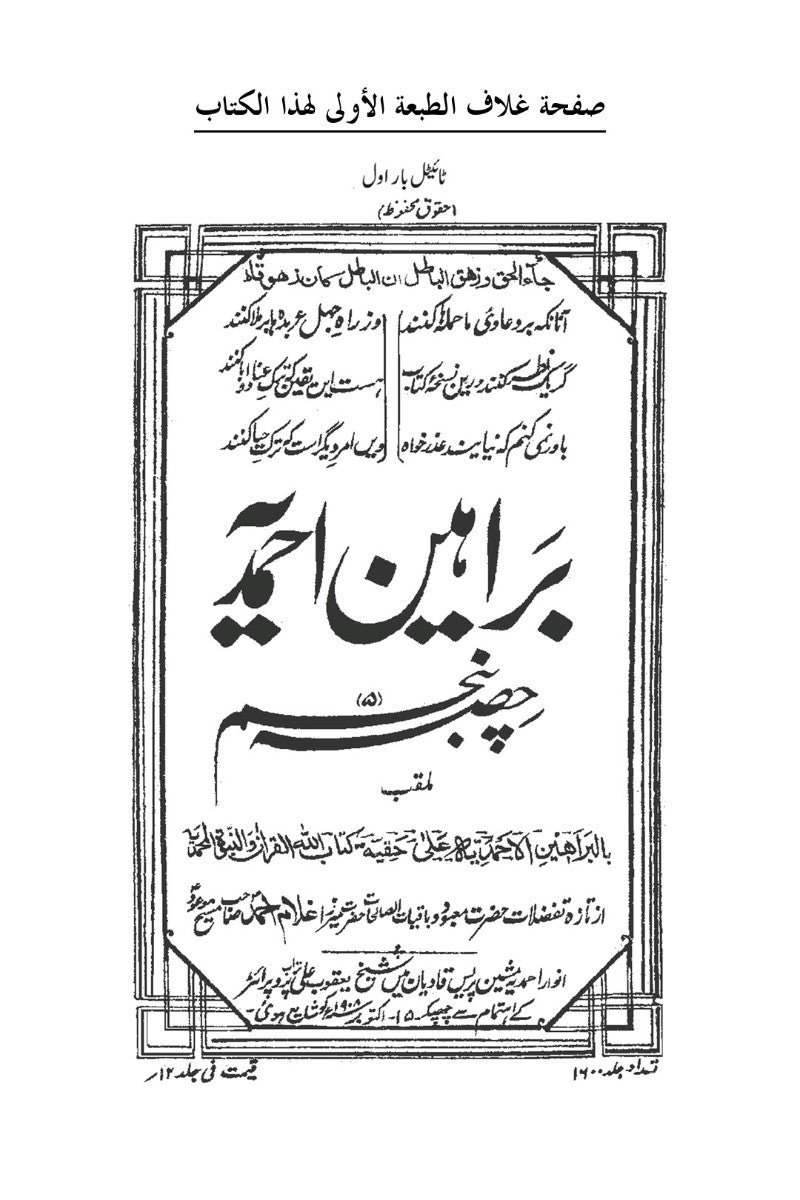 صفحة غلاف الطبعة الأولى لهذا الكتاب
ٹائیٹل بار اول
(حقوق محفوظ)
جاء الحق وزهق الباطل ان الباطل كان زهوقا
آنانکہ بر دعاوئ ما حملہ کنند وز راہ جہل عربدہ ہا برملا کنند
گر یک نظر کنند درین نسخہ کتاب ہست این یقین کہ ترک عناد و ابا کنند
باور نمی کنم کہ نیایند عذر خواہ ویں امر دیگر است کہ ترک حیا کنند
بَراہین احمدیّہ
حِصّہ پنجم
(۵)
ملقب
بالبراهين الاحمدية على حقية كتاب الله القران والنبوة المحمدية
از تازہ تفضلات حضرت معبود و باقیات الصالحات حضرت میرزا غلام احمد صاحب مسیح موعودؑ
انوار احمدیہ مشین پریس قادیان میں شیخ یعقوب علی تراب پروپرائٹر
کے اہتمام سے چھپکر ۱۵۔ اکتوبر ۱۹۰۸ء کو شایع ہوئی۔
تعداد جلد ۱۶۰۰
قیمت فی جلد ۱۲؍